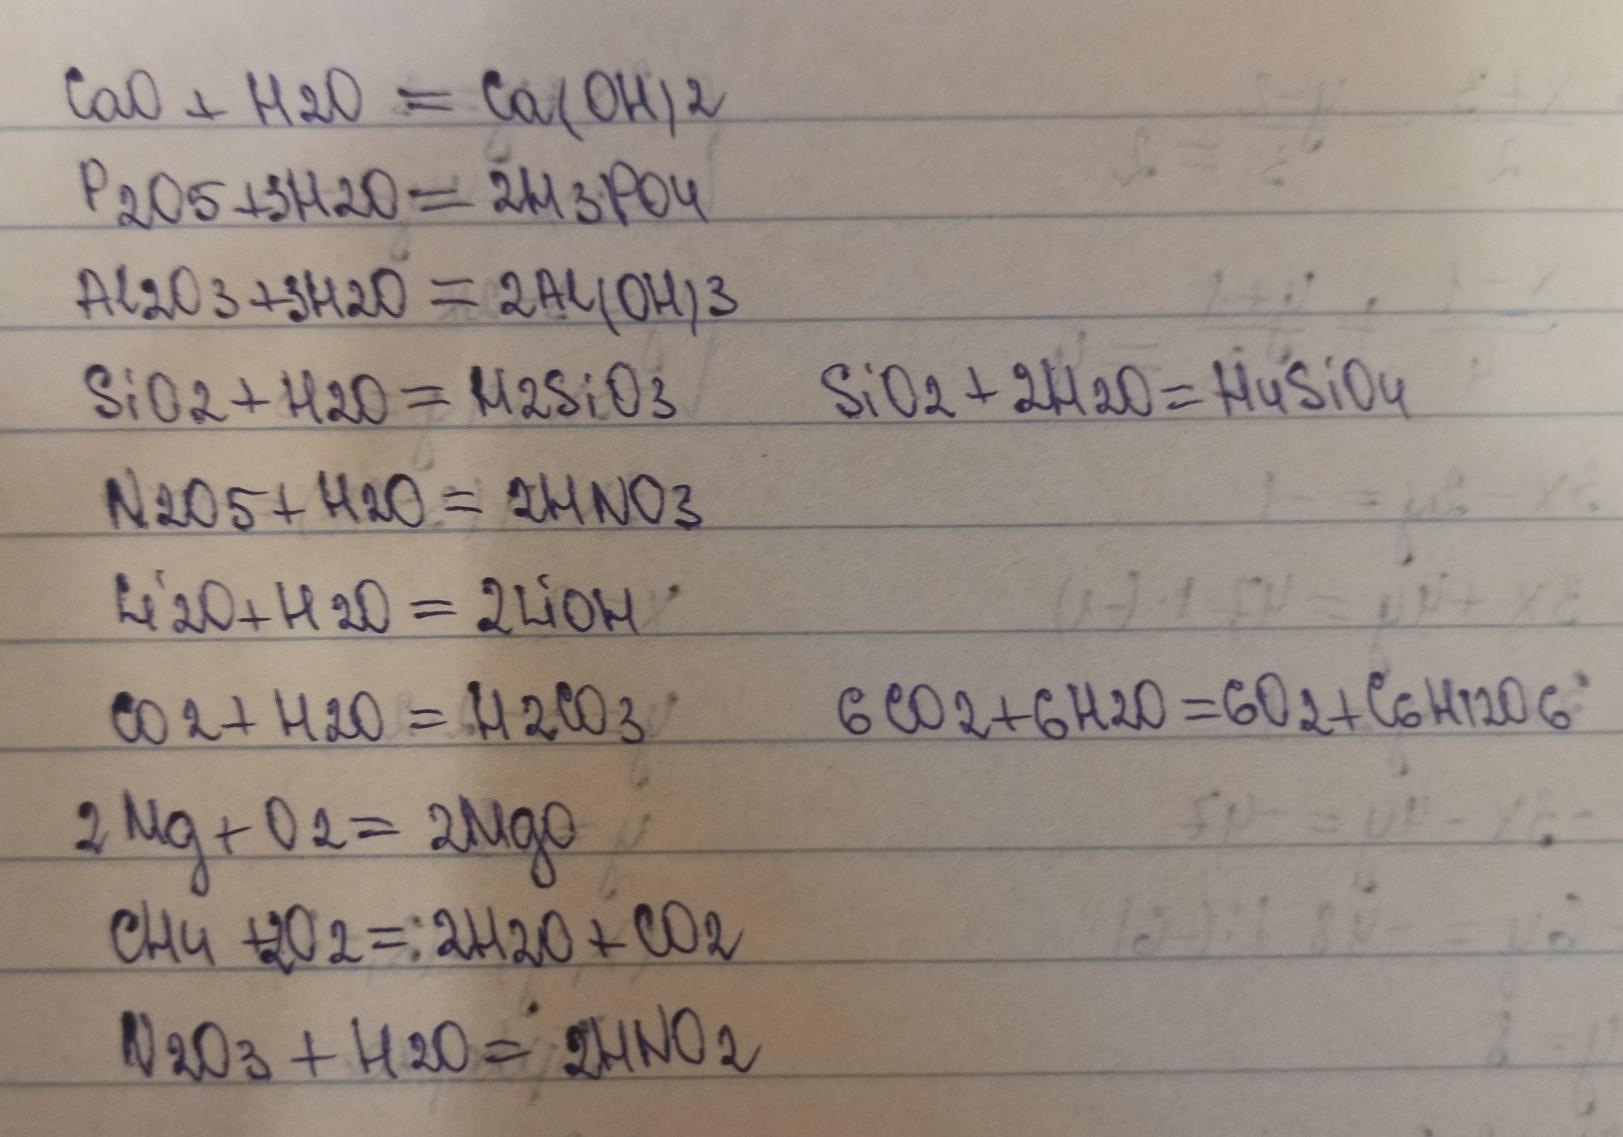 CaO + H2O = Ca(OH)2
P2O5+3H2O = 2H3PO4
Al2O3+3H2O = 2Al(OH)3
SiO2+H2O = H2SiO3 SiO2+2H2O=H4SiO4
N2O5+H2O = 2HNO3
Li2O+H2O = 2LiOH
CO2+H2O = H2CO3 6CO2+6H2O=6O2+C6H12O6
2Mg+O2 = 2MgO
CH4 +2O2 = 2H2O+CO2
N2O3 + H2O = 2HNO2